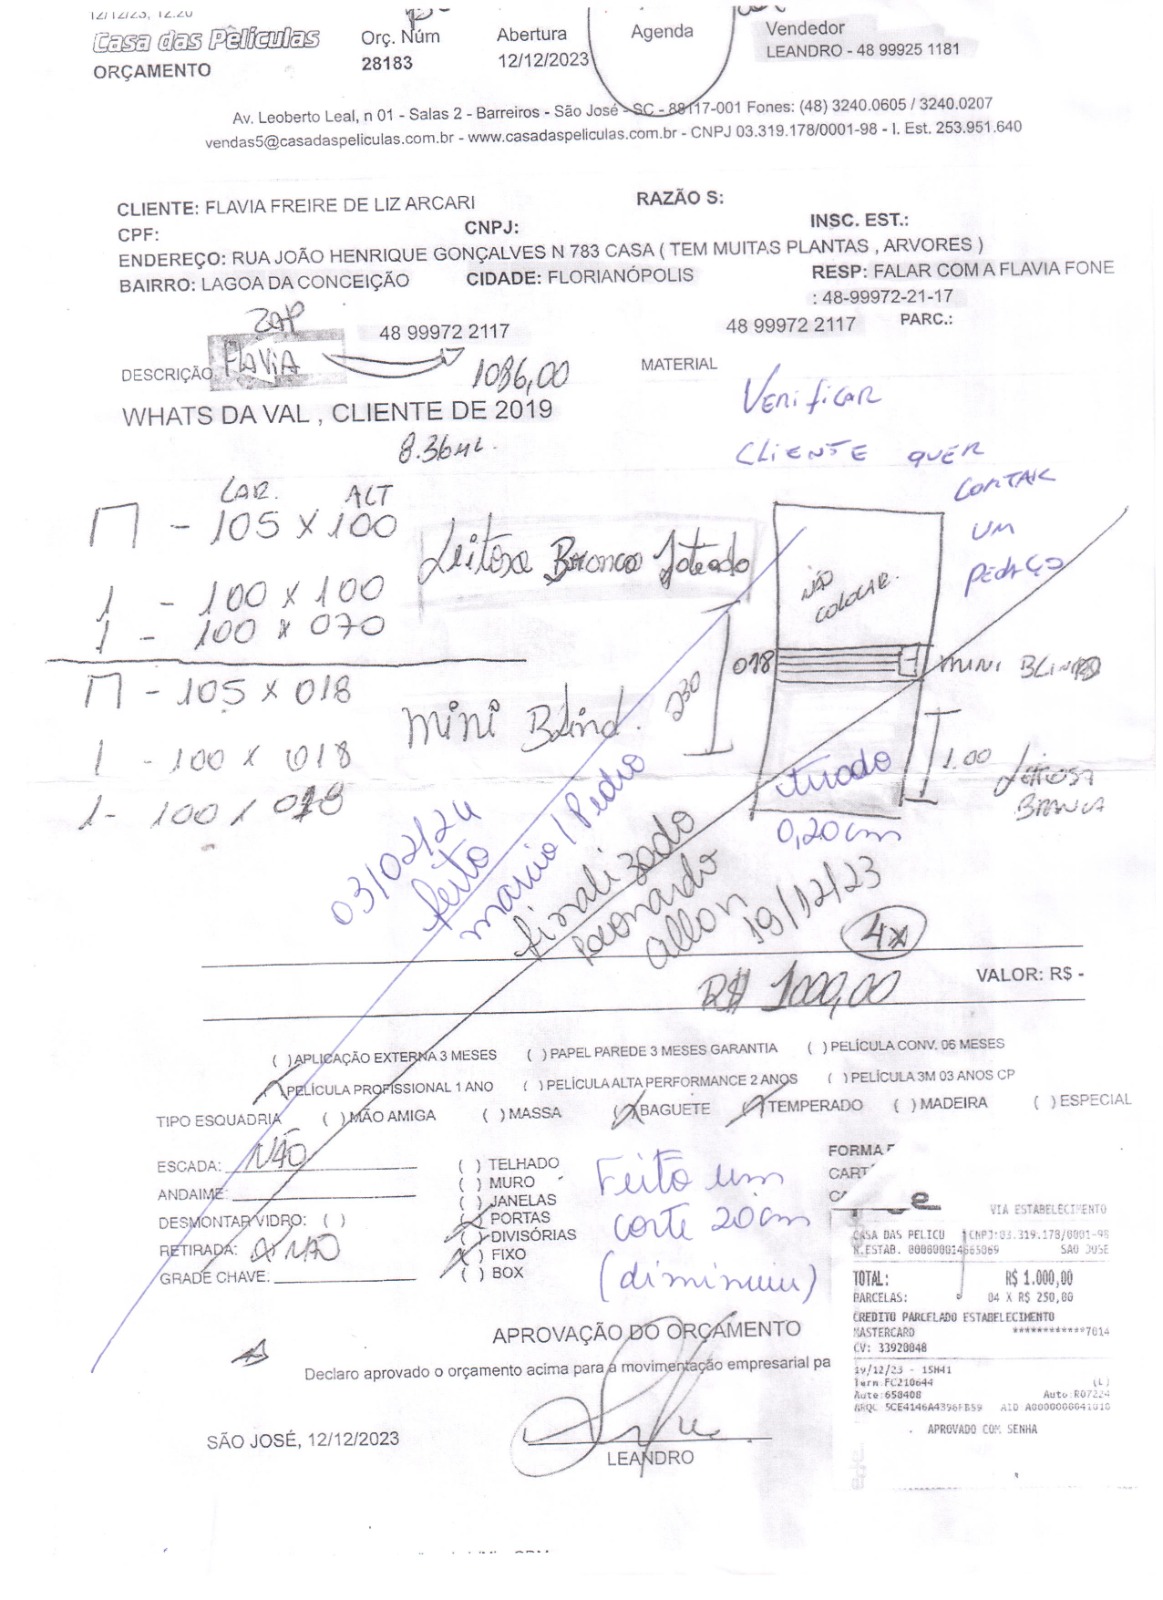 12/12/23, 12:20
Casa das Películas
ORÇAMENTO
Orç. Núm
28183
Abertura
12/12/2023
Agenda
Vendedor
LEANDRO - 48 99925 1181
Av. Leoberto Leal, n 01 - Salas 2 - Barreiros - São José - SC - 88117-001 Fones: (48) 3240.0605 / 3240.0207
vendas5@casadaspeliculas.com.br - www.casadaspeliculas.com.br - CNPJ 03.319.178/0001-98 - I. Est. 253.951.640
CLIENTE: FLAVIA FREIRE DE LIZ ARCARI RAZÃO S:
CPF: CNPJ: INSC. EST.:
ENDEREÇO: RUA JOÃO HENRIQUE GONÇALVES N 783 CASA ( TEM MUITAS PLANTAS , ARVORES )
BAIRRO: LAGOA DA CONCEIÇÃO CIDADE: FLORIANÓPOLIS RESP: FALAR COM A FLAVIA FONE
: 48-99972-21-17
ZAP
48 99972 2117 48 99972 2117 PARC.:
DESCRIÇÃO FLAVIA 1086,00 MATERIAL
WHATS DA VAL , CLIENTE DE 2019
Verificar
CLIENTE QUER
CORTAR
UM
PEDAÇO
8.36
LAR. ALT
- 105 x 100
1 - 100 x 100
1 - 100 x 070
Leitosa Branco Jateado
NÃO
COLOCAR.
- 105 x 018
1 - 100 x 018
1 - 100 x 018
mini Blind.
230
018
MINI BLIND
1.00
Leitosa
BRANCA
0,20cm
03/02/24
feito
marcio / Pedro
finalizado
Leonardo
allan
19/12/23
4x
R$ 1000,00
VALOR: R$ -
( ) APLICAÇÃO EXTERNA 3 MESES ( ) PAPEL PAREDE 3 MESES GARANTIA ( ) PELÍCULA CONV. 06 MESES
(X) PELÍCULA PROFISSIONAL 1 ANO ( ) PELÍCULA ALTA PERFORMANCE 2 ANOS ( ) PELÍCULA 3M 03 ANOS CP
TIPO ESQUADRIA ( ) MÃO AMIGA ( ) MASSA (X) BAGUETE (X) TEMPERADO ( ) MADEIRA ( ) ESPECIAL
ESCADA: NÃO
ANDAIME:
DESMONTAR VIDRO: ( )
RETIRADA: (X) NÃO
GRADE CHAVE:
( ) TELHADO
( ) MURO
( ) JANELAS
(X) PORTAS
( ) DIVISÓRIAS
(X) FIXO
( ) BOX
Feito um
corte 20cm
(diminuiu)
FORMA
CART
VIA ESTABELECIMENTO
CASA DAS PELICU CNPJ:03.319.178/0001-98
N.ESTAB. 000000014665069 SAO JOSE
TOTAL: R$ 1.000,00
PARCELAS: 04 X R$ 250,00
CREDITO PARCELADO ESTABELECIMENTO
MASTERCARD ************7014
CV: 33920048
19/12/23 - 15H41
Term:FC210644 (L)
Aute:658408 Auto:R07224
ARQC 5CE4146A4396FB59 AID A0000000041010
APROVADO COM SENHA
APROVAÇÃO DO ORÇAMENTO
Declaro aprovado o orçamento acima para a movimentação empresarial pa
SÃO JOSÉ, 12/12/2023
LEANDRO